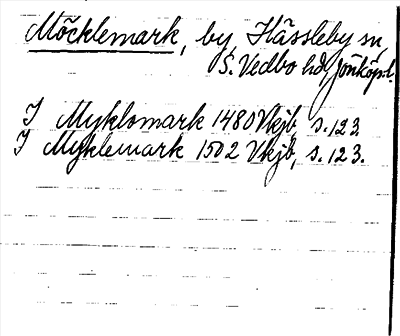 Möcklemark, by, Hässleby sn,
S. Vedbo hd, Jönköp.l.
I Myklomark 1480 Vkjb, s. 123
I Myklemark 1502 Vkjb, s. 123.